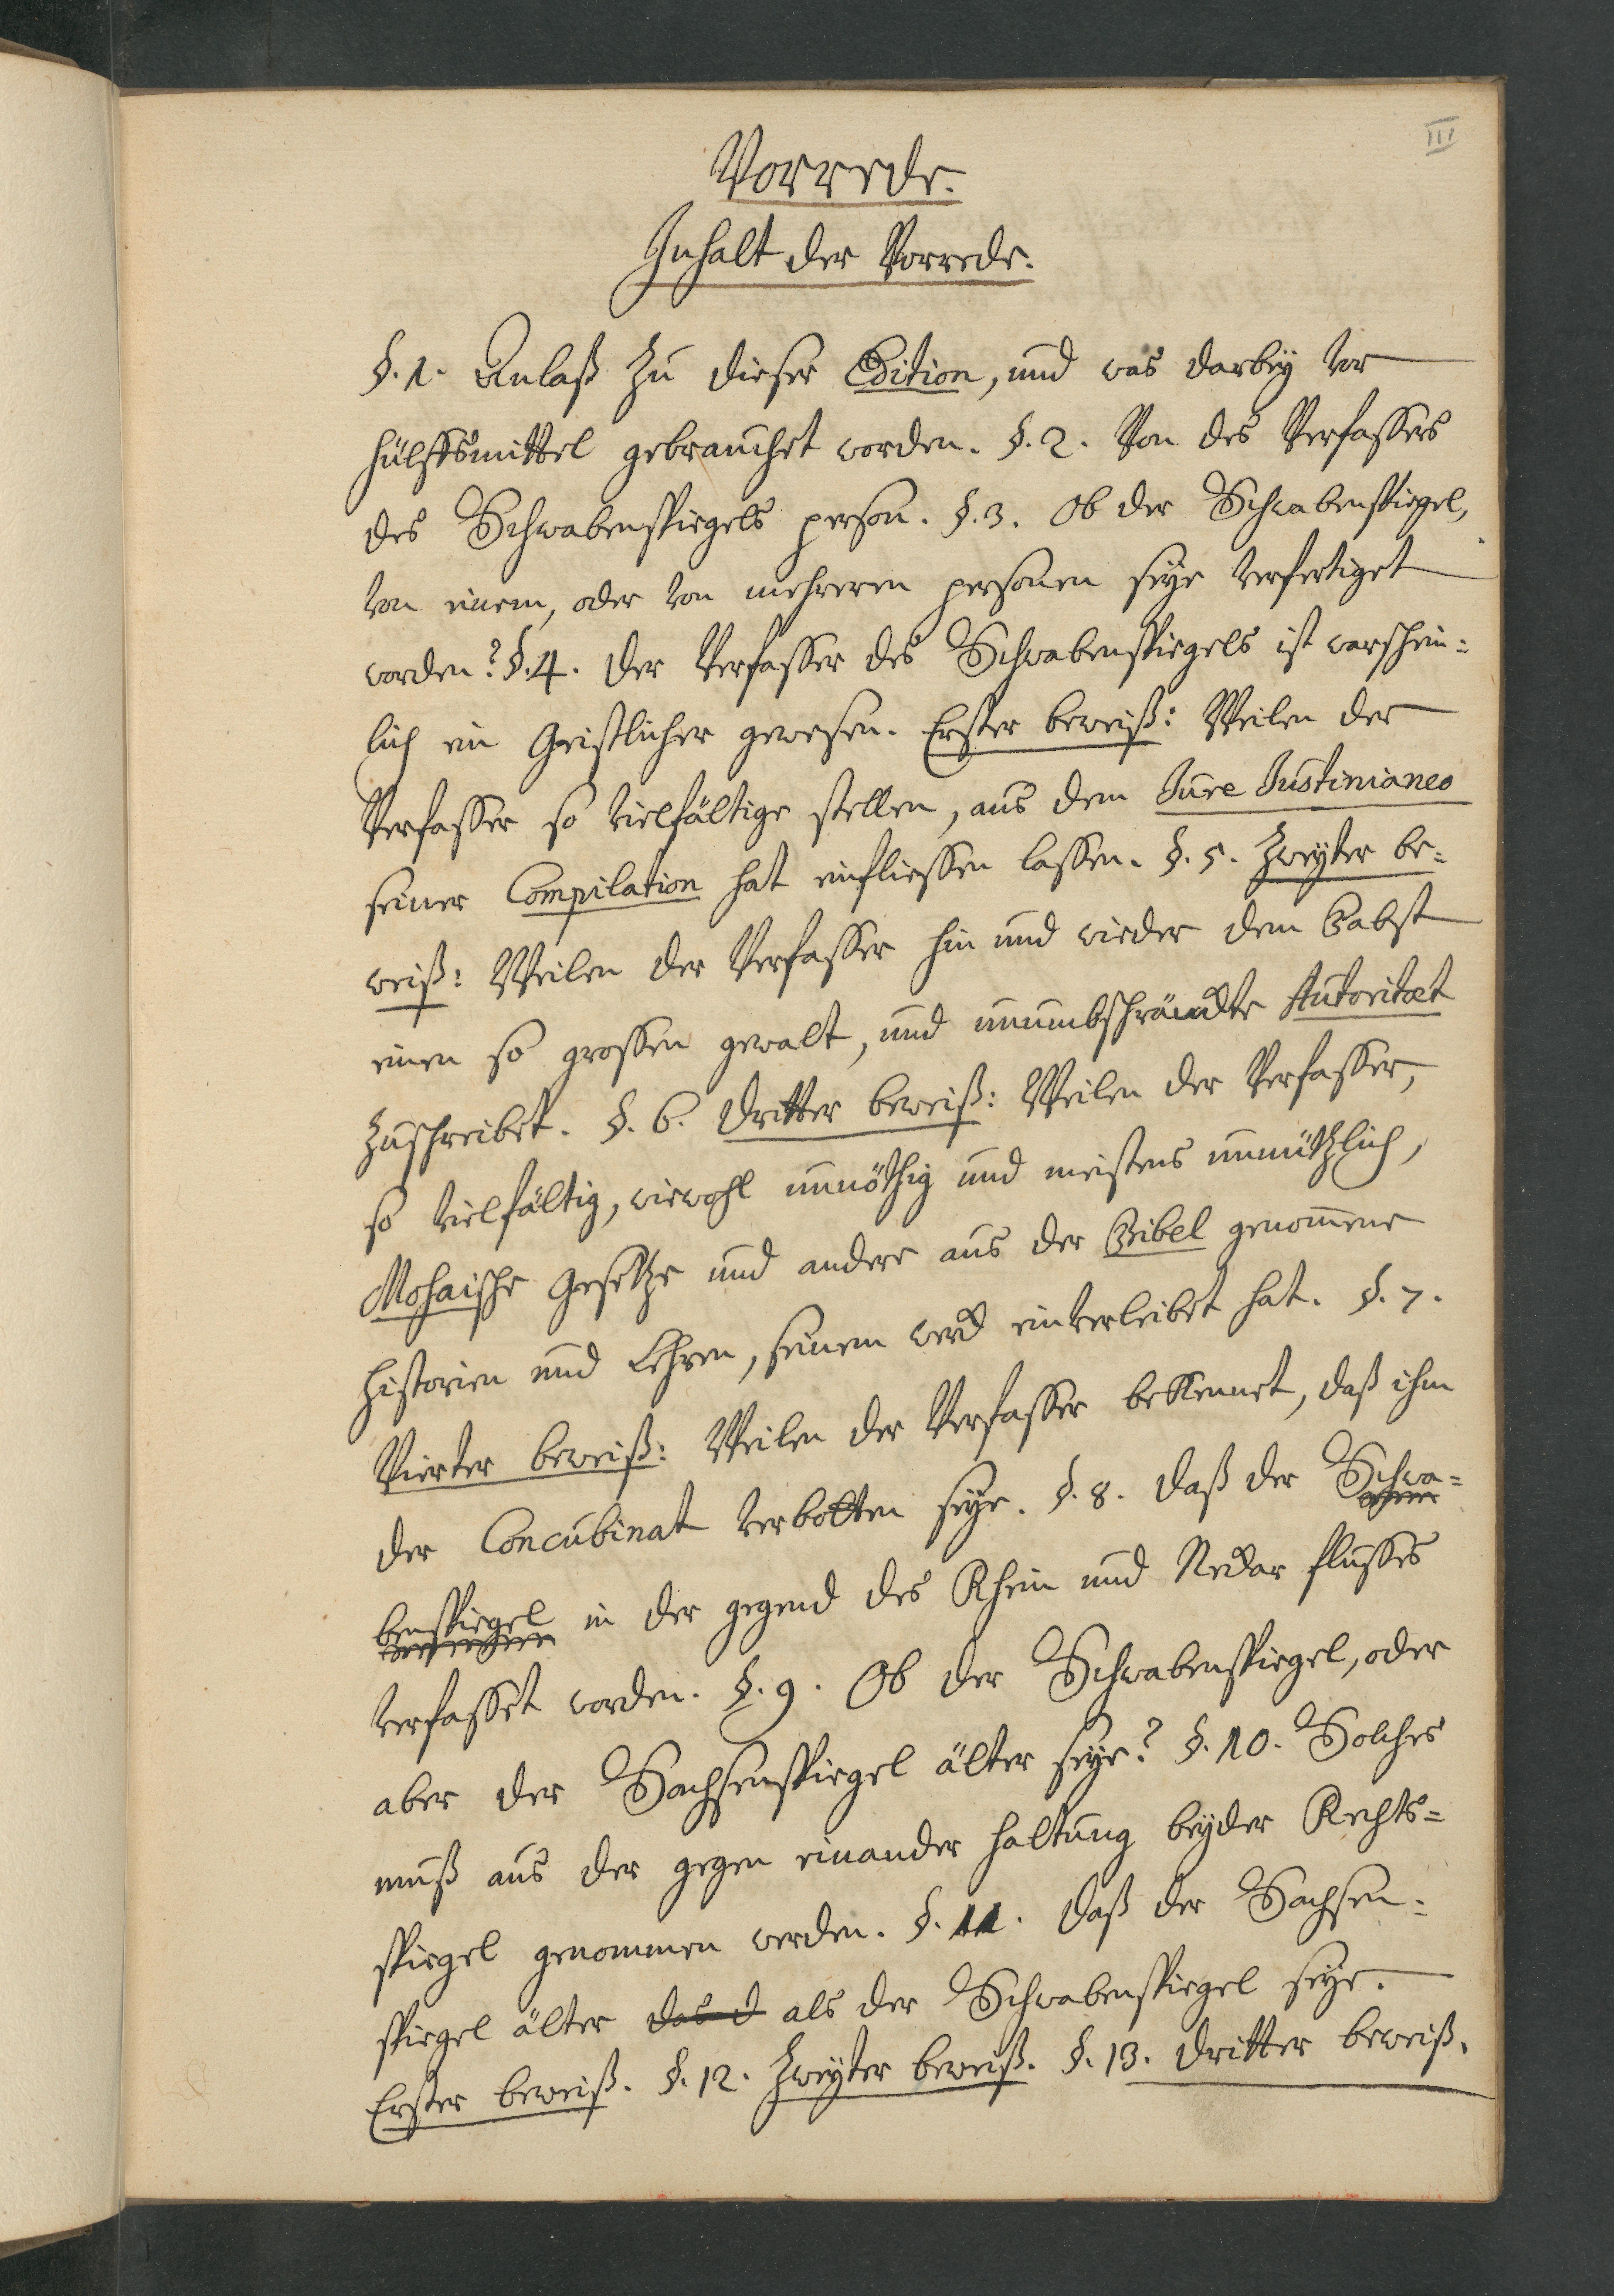 III
Vorrede.
Inhalt der Vorrede.
§. 1. Anlaß zu dieser Edition, und was darbey vor
hülffsmittel gebrauchet worden. §. 2. Von des Verfassers
des Schwabenspiegels person. §. 3. Ob der Schwabenspiegel,
von einem, oder von mehreren personen seye verfertiget
worden? §. 4. der Verfasser des Schwabenspiegels ist warschein=
lich ein Geistlicher gewesen. Erster beweiß: Weilen der
Verfasser so vielfältige stellen, aus dem Jure Justinianeo
seiner Compilation hat einfliessen lassen. §. 5. Zweyter be=
weiß: Weilen der Verfasser hin und wieder dem Pabst
einen so grossen gewalt, und unumbschränckte Autoritæt
zuschreibet. §. 6. dritter beweiß: Weilen der Verfasser,
so vielfältig, wiewohl unnöthig und meistens unnützlich,
Mosaische Gesetze und andere aus der Bibel genom̄ene
historien und Lehren, seinem werck einverleibet hat. §. 7.
Vierter beweiß: Weilen der Verfasser bekennet, daß ihm
der Concubinat verbotten seye. §. 8. daß der Schwa=
benspiegel in der gegend des Rhein und Neckar flusses
verfasset worden. §. 9. Ob der Schwabenspiegel, oder
aber der Sachsenspiegel älter seye? §. 10. Solches
muß aus der gegen einander haltung beyder Rechts=
spiegel genommen werden. §. 11. daß der Sachsen=
spiegel älter das d als der Schwabenspiegel seye.
Erster beweiß. §. 12. Zweyter beweiß. §. 13. dritter beweiß.